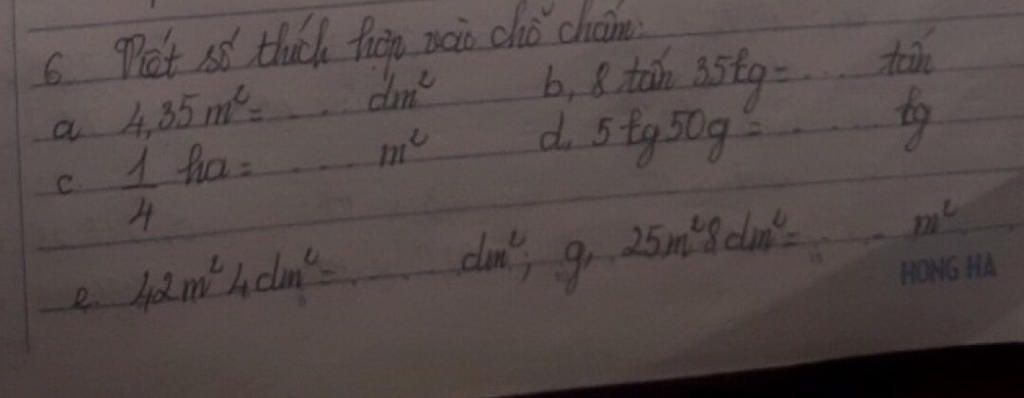 6. Viết số thích hợp vào chỗ chấm:
a. 4,35m² = .... dm² b, 8 tấn 35kg = .... tấn
c. 1/4 ha = .... m² d, 5kg50g = ..... kg
e. 42m²4dm² = ...... dm²; g, 25m²8dm² = ..... m²
HONG HA